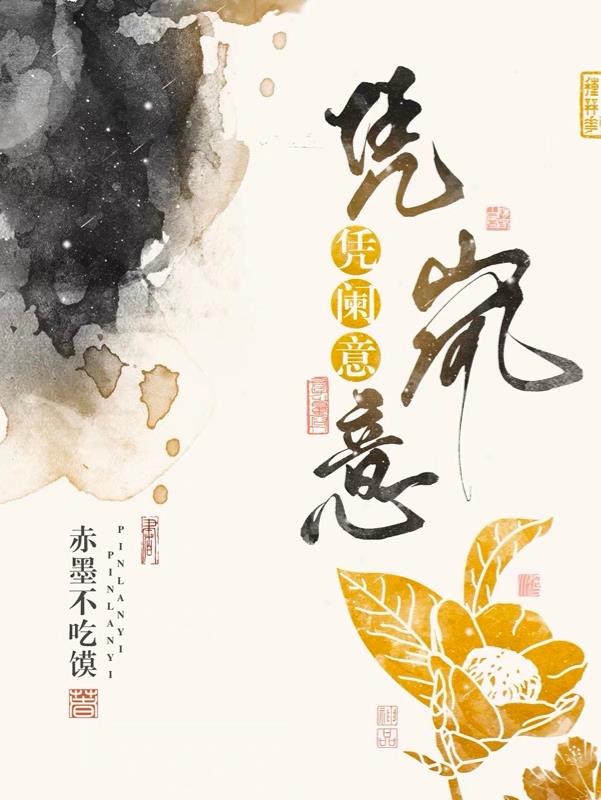 凭岚意
凭阑意
赤墨不吃馍
PINLANYI
PINLANYI
神品